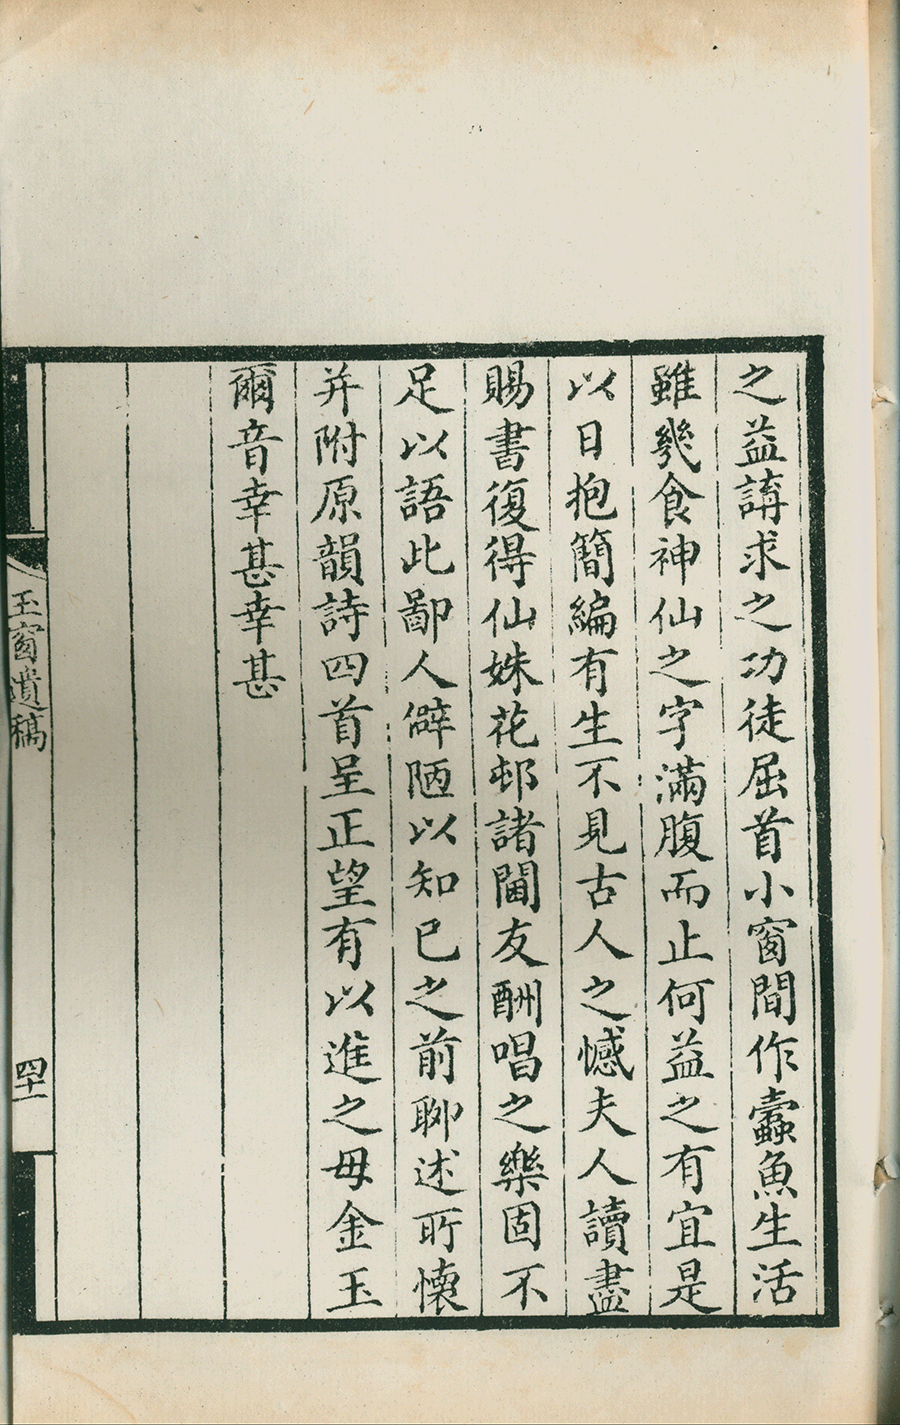 之益講求之功徒屈首小窗間作蠹魚生活
雖幾食神仙之字滿腹而止何益之有宜是
以日抱簡編有生不見古人之憾夫人讀盡
賜書復得仙姝花邨諸閨友酬唱之樂固不
足以語此鄙人僻陋以知已之前聊述所懷
并附原韻詩四首呈正望有以進之毋金玉
爾音幸甚幸甚
玉窗遺稿
四十一